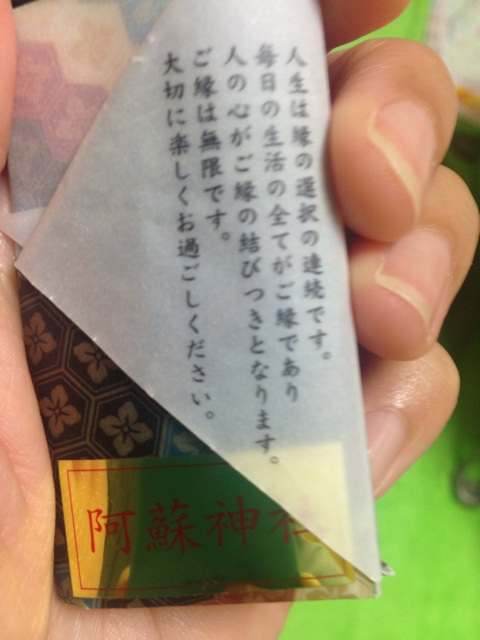 人生は縁の選択の連続です。
毎日の生活の全てがご縁であり
人の心がご縁の結びつきとなります。
ご縁は無限です。
大切に楽しくお過ごしください。
阿蘇神社